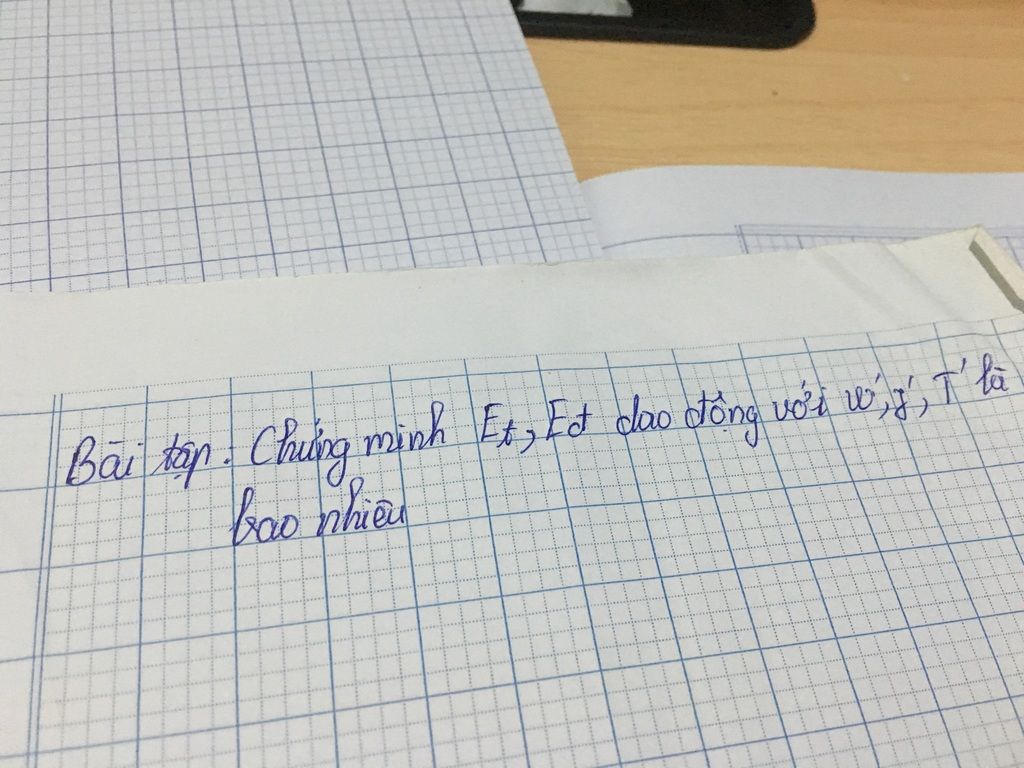 Bài tập: Chứng minh Et, Eđ dao động với ω', f', T' là
bao nhiêu